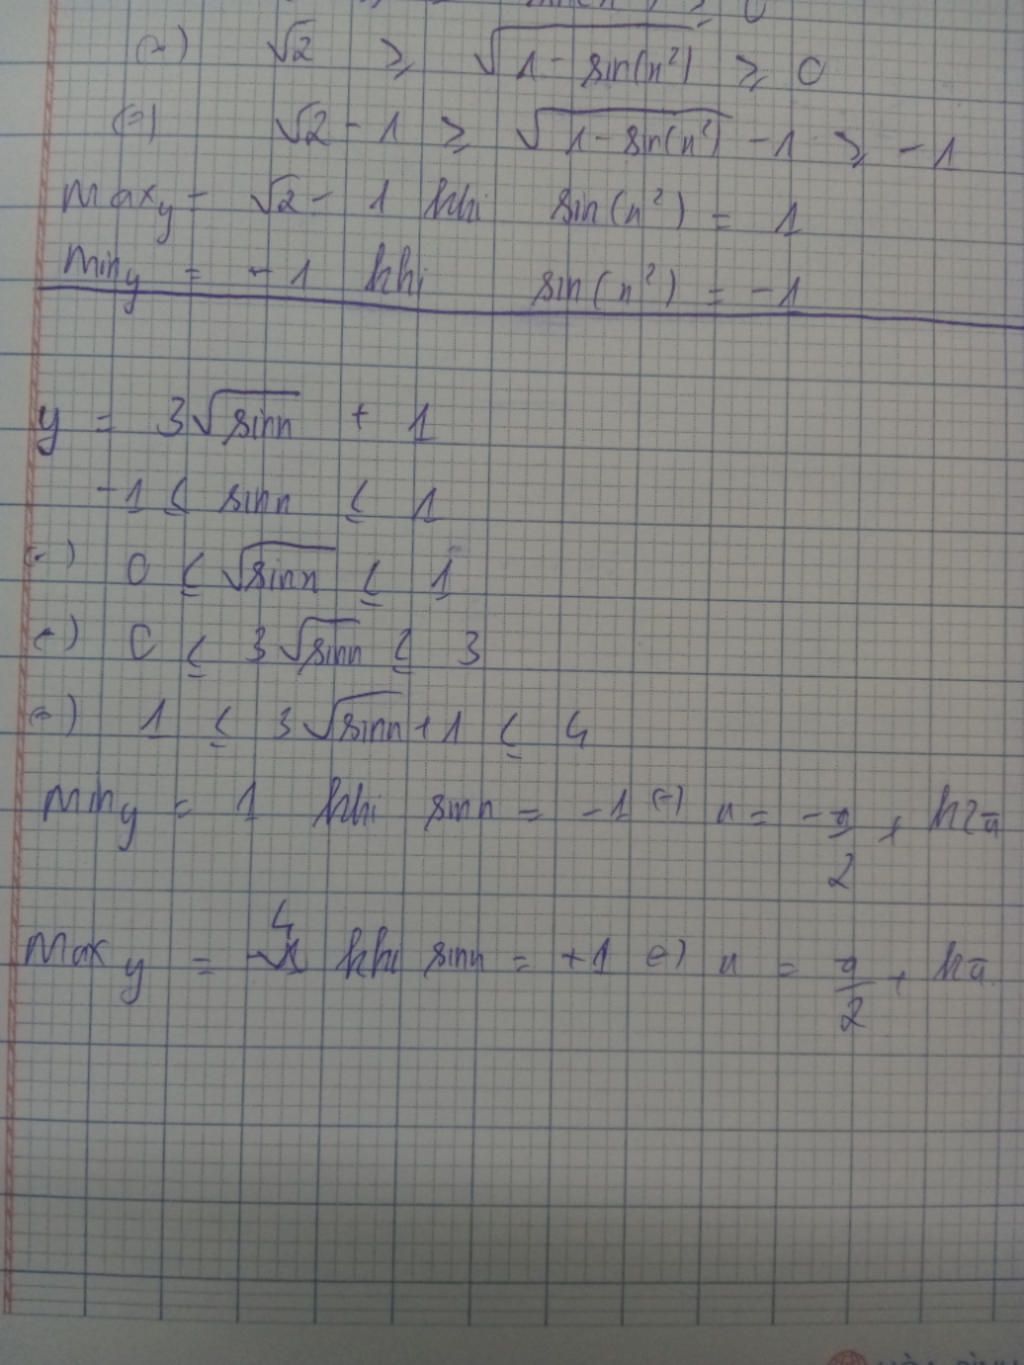 (=) √2 ≥ √(1 - sin(x²)) ≥ 0
(=) √2 - 1 ≥ √(1 - sin(x²)) - 1 ≥ -1
Max y = √2 - 1 khi sin(x²) = 1
Min y = -1 khi sin(x²) = -1
y = 3√sinx + 1
-1 ≤ sinx ≤ 1
(=) 0 ≤ √sinx ≤ 1
(=) 0 ≤ 3√sinx ≤ 3
(=) 1 ≤ 3√sinx + 1 ≤ 4
Min y = 1 khi sinx = -1 (=) x = -π/2 + k2π
Max y = 4 khi sinx = +1 (=) x = π/2 + kπ